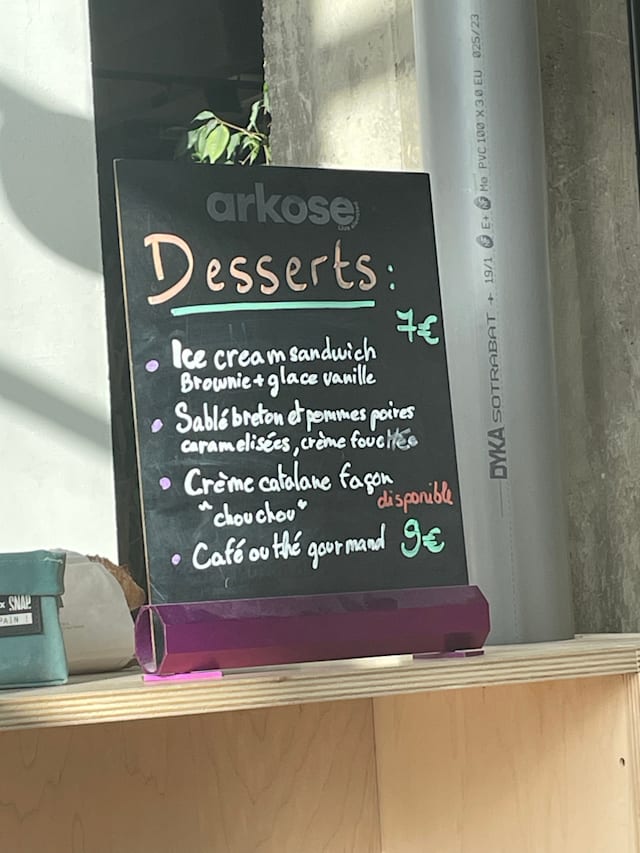 arkose
Desserts :
7€
Ice cream sandwich
Brownie + glace vanille
Sablé breton et pommes poires
caramelisées, crème fouettée
Crème catalane façon
"chouchou"
disponible
Café ou thé gourmand 9€
x SNAP
PAIN !
DYKA SOTRABAT + 19/1 E+ Mø PVC 100 X 3.0 EU 025/23